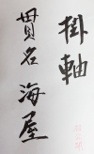 掛軸
貫名海屋